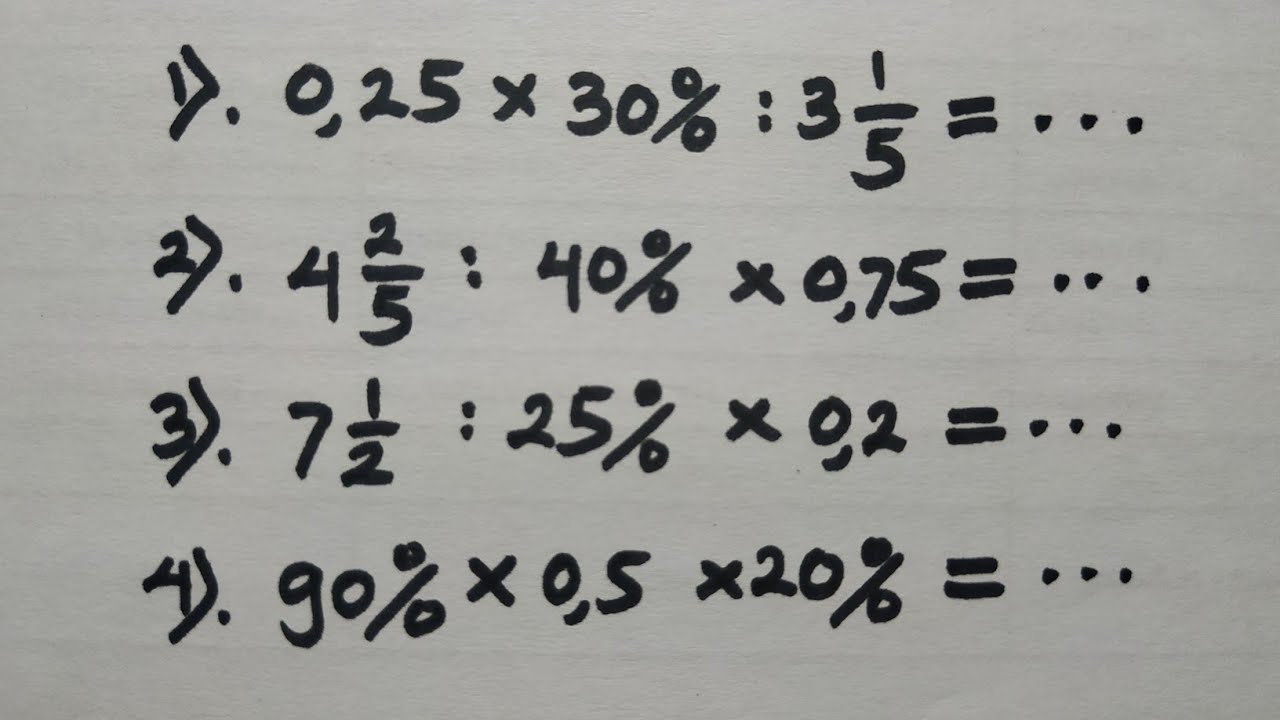 1). 0,25 × 30% : 3 1/5 = ...
2). 4 2/5 : 40% × 0,75 = ...
3). 7 1/2 : 25% × 0,2 = ...
4). 90% × 0,5 × 20% = ...